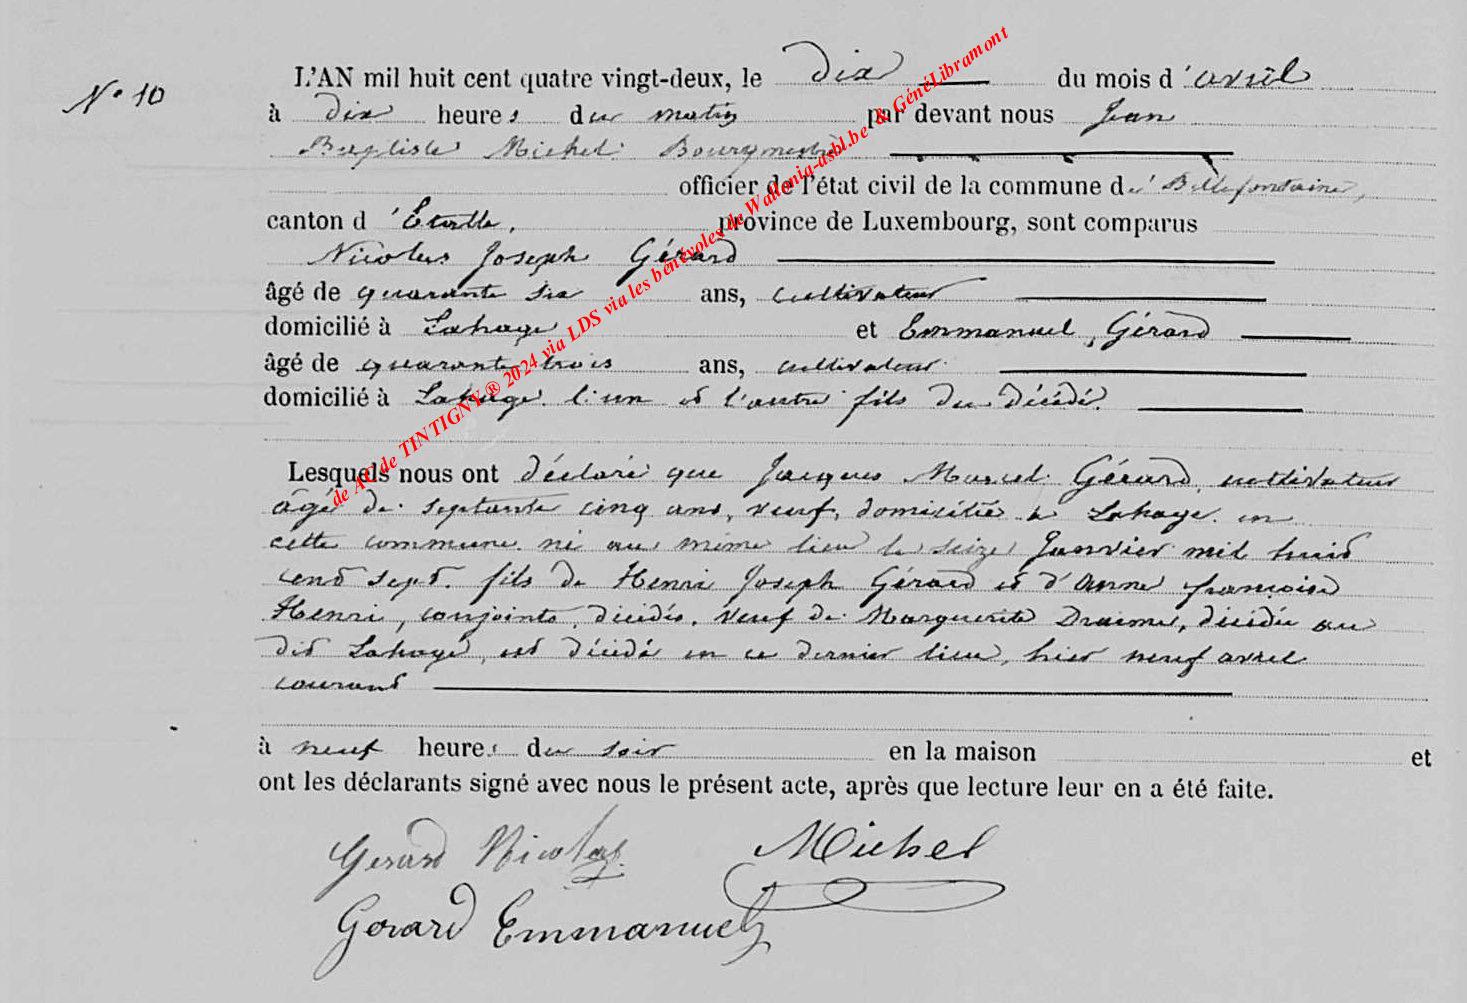 N° 10
L'AN mil huit cent quatre vingt-deux, le dix du mois d'avril
à dix heures du matin par devant nous Jean
Baptiste Michel Bourgmestre
officier de l'état civil de la commune de Bellefontaine,
canton d'Etalle, province de Luxembourg, sont comparus
Nicolas Joseph Gérard
âgé de quarante six ans, cultivateur
domicilié à Lahage et Emmanuel Gérard
âgé de quarante trois ans, cultivateur
domicilié à Lahage l'un et l'autre fils du décédé.
Lesquels nous ont déclaré que Jacques Marcel Gérard, cultivateur
âgé de septante cinq ans, veuf, domicilié à Lahage en
cette commune né au même lieu le seize Janvier mil huit
cent sept. fils de Henri Joseph Gérard et d'Anne françoise
Henri, conjoints, décédés. veuf de Marguerite Draime, décédée au
dit Lahage, est décédé en ce dernier lieu, hier neuf avril
courant
à neuf heures du soir en la maison et
ont les déclarants signé avec nous le présent acte, après que lecture leur en a été faite.
Gerard Nicolas Michel
Gerard Emmanuel
de AC de TINTIGNY ® 2024 via LDS via les bénévoles de Wallonia-asbl.be & GénéLibramont